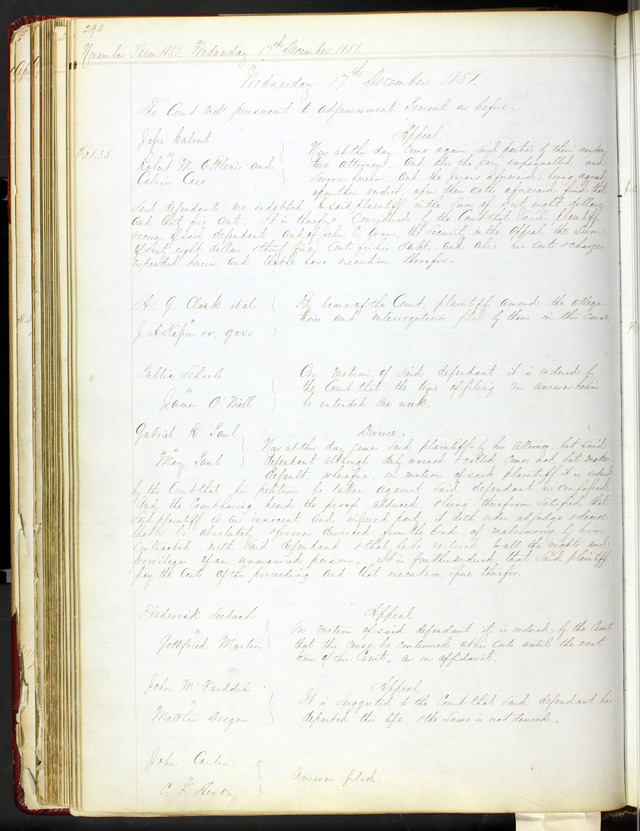 290
November Term 1851. Wednesday 17th December 1851.
Wednesday 17th December 1851.
The Court met pursuant to adjournment. Present as before.
Jesse Calvert
vs
Robert M. O'Blenis and
Calvin Case
Appeal.
Now at this day come again said parties by their respec-
tive attorneys. And also the jury empannelled and
sworn herein. And the jurors aforesaid being agreed
upon their verdict upon their oaths aforesaid find that
said defendants are indebted to said plaintiff in the sum of sixty eight dollars
and that his costs. It is therefore considered by the Court that said plaintiff
recover of said defendants and of John C. the security in the appeal the sum
of sixty eight dollars his debt and also his costs & charges
expended herein and that he have execution therefor.
A. G. Clark et al
J. A. garn.
By leave of the Court, plaintiffs amend the allega-
tions and interrogatories filed by them in this cause.
Public Schools
vs
James O'Neill
On motion of said defendant, it is ordered by
the Court that the time of filing an answer herein
be extended one week.
Gabriel R. Paul
vs
Mary Paul
Divorce.
Now at this day comes said plaintiff by his attorney, but said
defendant although duly warned & called comes not, but makes
default, wherefore, on motion of said plaintiff it is ordered
by the Court that his petition be taken against said defendant as confessed.
And the Court having heard the proof adduced, & being therefrom satisfied that
said plaintiff is an innocent and injured party, it doth order adjudge & decree
that he be absolutely & forever divorced from the bonds of matrimony by him
contracted with said defendant & that he be restored to all the rights and
privileges of an unmarried person. It is further ordered that said plaintiff
pay the costs of this proceeding and that execution issue therefor.
Frederick Seebach
vs
Gottfried Marten
Appeal
On motion of said defendant it is ordered by the Court
that the cause be continued at his costs until the next
term of the Court, as on affidavit.
John M.
vs
Matthew Deegan
Appeal
It is suggested to the Court that said defendant has
departed this life, & the same is not denied.
John Carlin
vs
C. F. Henkey
Answer filed.